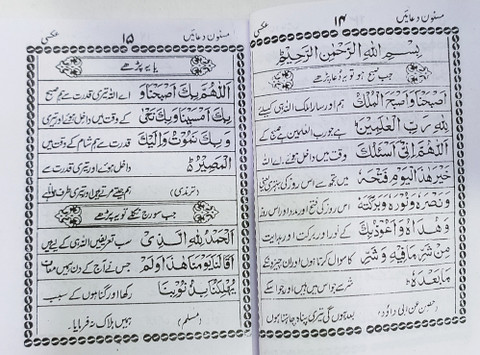 مسنون دعائیں ۱۴
بِسْمِ اللهِ الرَّحْمٰنِ الرَّحِيْمِ
جب صبح ہو تو یہ دُعا پڑھے
اَصْبَحْنَا وَاَصْبَحَ الْمُلْكُ ہم اور سارا ملک اللہ ہی کیلئے
لِلّٰهِ رَبِّ الْعٰلَمِيْنَ ہے جو رب العالمین ہے صبح کے
اَللّٰهُمَّ اِنِّيْ اَسْئَلُكَ وقت میں داخل ہوئے، اے اللہ
خَيْرَ هٰذَا الْيَوْمِ فَتْحَهٗ میں تجھ سے اس روز کی بہتری یعنی
وَنَصْرَهٗ وَنُوْرَهٗ وَبَرَكَتَهٗ اس روز کی فتح اور مدد اور اس روز
وَهُدَاهُ وَاَعُوْذُ بِكَ کے نور اور برکت اور ہدایت
مِنْ شَرِّ مَا فِيْهِ وَشَرِّ کا سوال کرتا ہوں اور ان چیزوں کے
مَا بَعْدَهٗ شر سے جو اس میں ہیں اور جو اسکے
(حصن عن ابی داؤد) بعد ہوں گی تیری پناہ چاہتا ہوں
عکسی ۱۵ مسنون دعائیں
یا یہ پڑھے
اَللّٰهُمَّ بِكَ اَصْبَحْنَا وَ اے اللہ تیری قدرت سے ہم صبح
بِكَ اَمْسَيْنَا وَبِكَ نَحْيٰى کے وقت میں داخل ہوئے اور تیری
وَبِكَ نَمُوْتُ وَاِلَيْكَ قدرت سے ہم شام کے وقت میں
الْمَصِيْرُ داخل ہوئے اور تیری قدرت سے
(ترمذی) ہم جیتے مرتے ہیں اور تیری طرف جانا ہے
جب سورج نکلے تو یہ پڑھے
اَلْحَمْدُ لِلّٰهِ الَّذِيْ سب تعریفیں اللہ ہی کے لیے ہیں
اَقَالَنَا يَوْمَنَا هٰذَا وَلَمْ جس نے آج کے دن ہمیں معاف
يُهْلِكْنَا بِذُنُوْبِنَا رکھا اور گناہوں کے سبب
(مسلم) ہمیں ہلاک نہ فرمایا۔